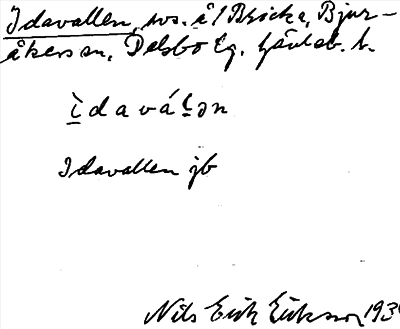 Idavallen, svs. å/ Bricka, Bjur-
åkers sn, Delsbo tg. Gävleb. l.
ì d a v á l ə n
Idavallen jb
Nils Erik Eriksson 193